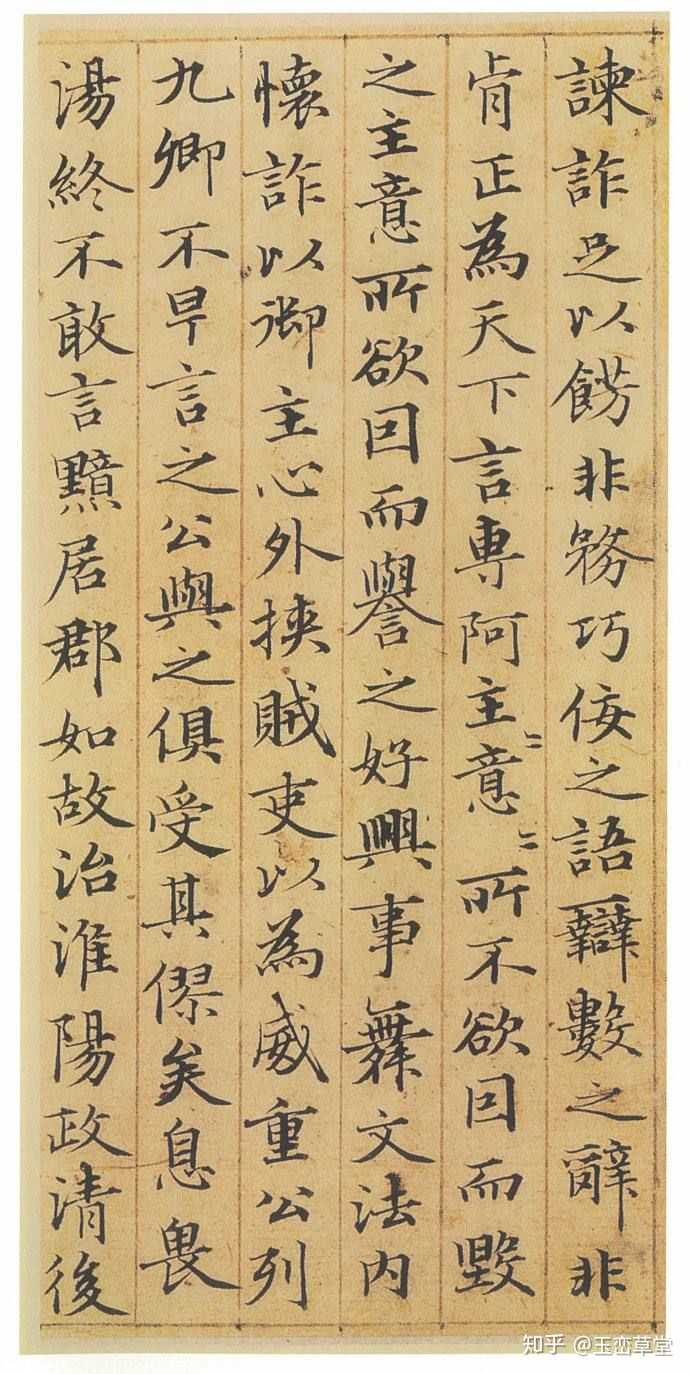 諫詐足以餝非務巧佞之語辯數之辭非
肯正為天下言專阿主〻意〻所不欲因而毀
之主意所欲因而譽之好興事舞文法内
懷詐以御主心外挾賊吏以為威重公列
九卿不早言之公與之俱受其僇矣息畏
湯終不敢言黯居郡如故治淮陽政清後
知乎 @玉峦草堂